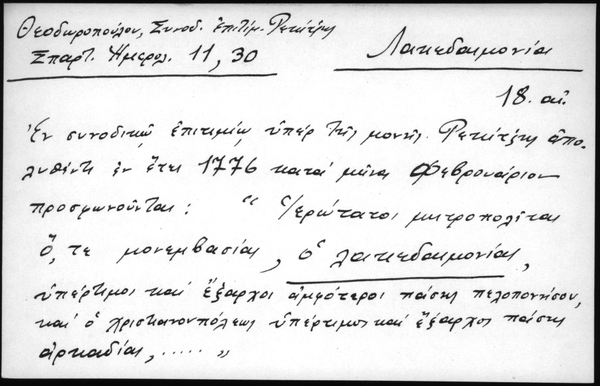 Θεοδωροπούλου, Συνοδ. ἐπιτίμ. Ρεκίτζης
Σπαρτ. Ἡμερολ. 11, 30
Λακεδαιμονίας
18. αἰ.
Ἐν συνοδικῷ ἐπιτιμίῳ ὑπὲρ τῆς μονῆς Ρεκίτζης ἀπο-
λυθέντι ἐν ἔτει 1776 κατὰ μῆνα Φεβρουάριον
προσφωνοῦνται: "ἱερώτατοι μητροπολῖται
ὅ, τε μονεμβασίας, ὁ λακεδαιμονίας,
ὑπέρτιμοι καὶ ἔξαρχοι ἀμφότεροι πάσης πελοποννήσου,
καὶ ὁ χριστιανουπόλεως ὑπέρτιμος καὶ ἔξαρχος πάσης
ἀρκαδίας, ..... "